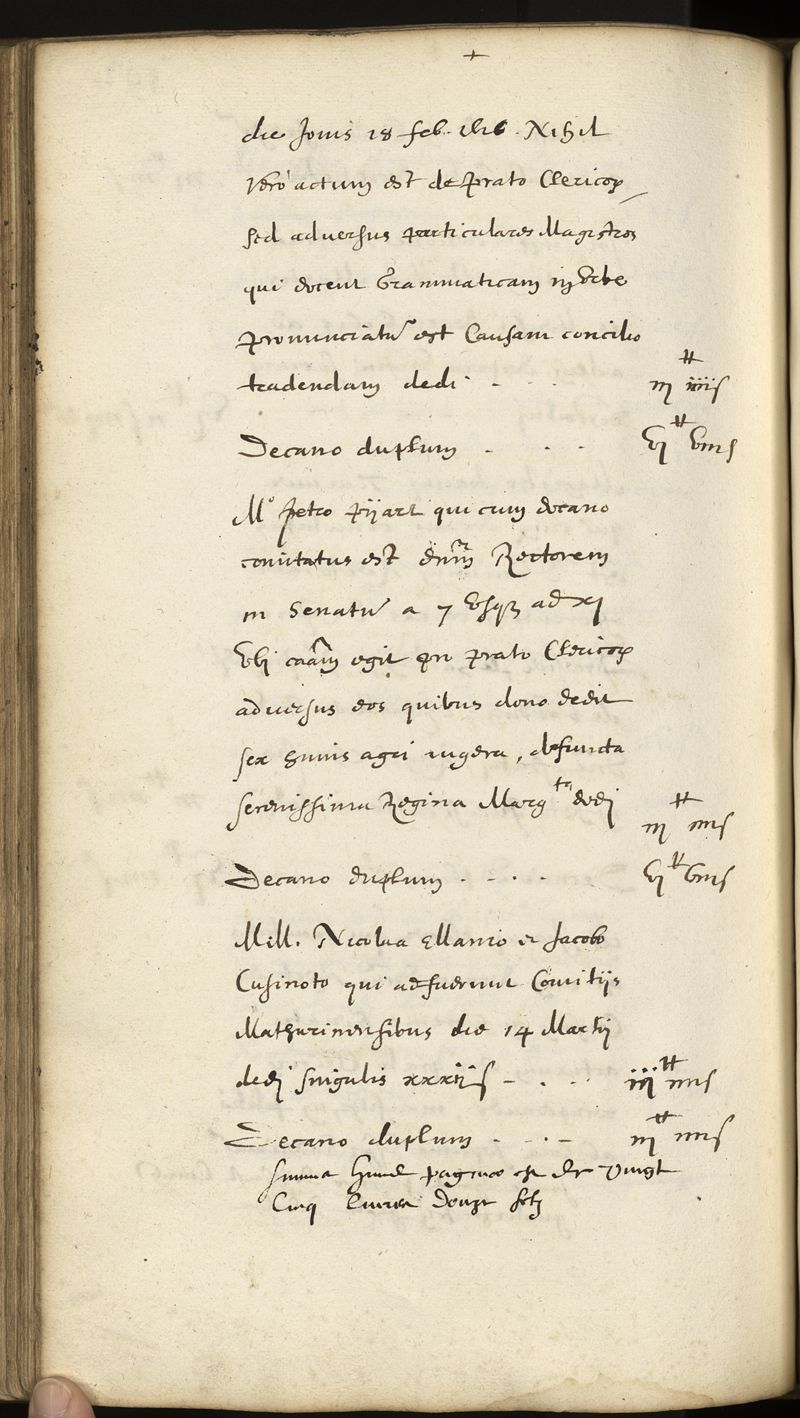 +
die Jovis 18 feb. 1616. Nihil
vero actum est de prato Clericoꝝ
sed adversus particulares Magistros
qui docent Grammaticam in Urbe
pronunciatū est Causam concilio
tradendam dedi - - - iij ₶ iiij s
Decano duplum - - - vj ₶ viij s
Mo petro pijart qui cum decano
comitatus est dnm̄ Rectorem
in Senatū a 7 usqꝫ ad xj
Ubi caām egit pro prato Clericoꝝ
adversus eos quibus dono dedit
sex huius agri iugera, defuncta
serenissima Regina Marg ta dedj iij ₶ iiij s
Decano duplum - - - - vj ₶ viij s
MM. Nicolao et Jacobo
Cusinoto qui adfuerunt Comitijs
Mathurinensibus die 14 Martij
dedj singulis xxxij s - - - iij ₶ iiij s
Decano duplum - - - iij ₶ iiij s
Summa est de vingt
Cinq livres douze solz